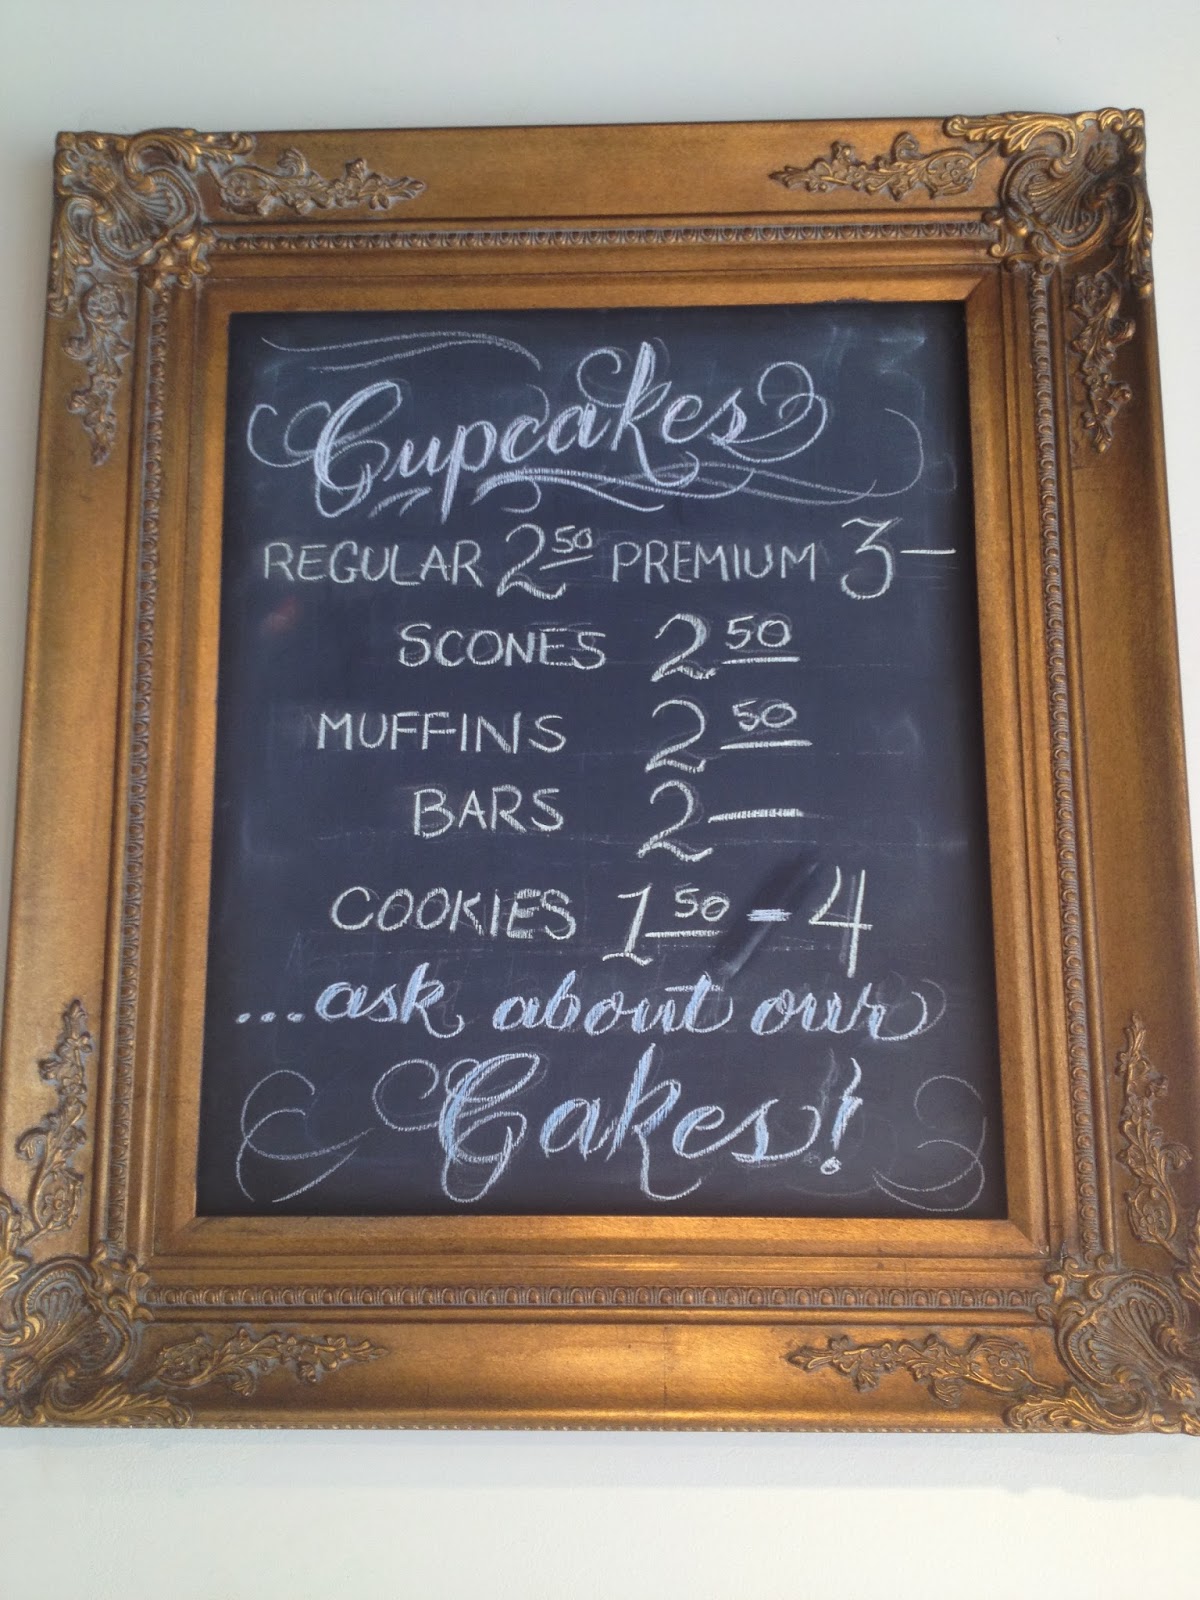 Cupcakes
REGULAR 2 50 PREMIUM 3—
SCONES 2 50
MUFFINS 2 50
BARS 2—
COOKIES 1 50 - 4
...ask about our
Cakes!